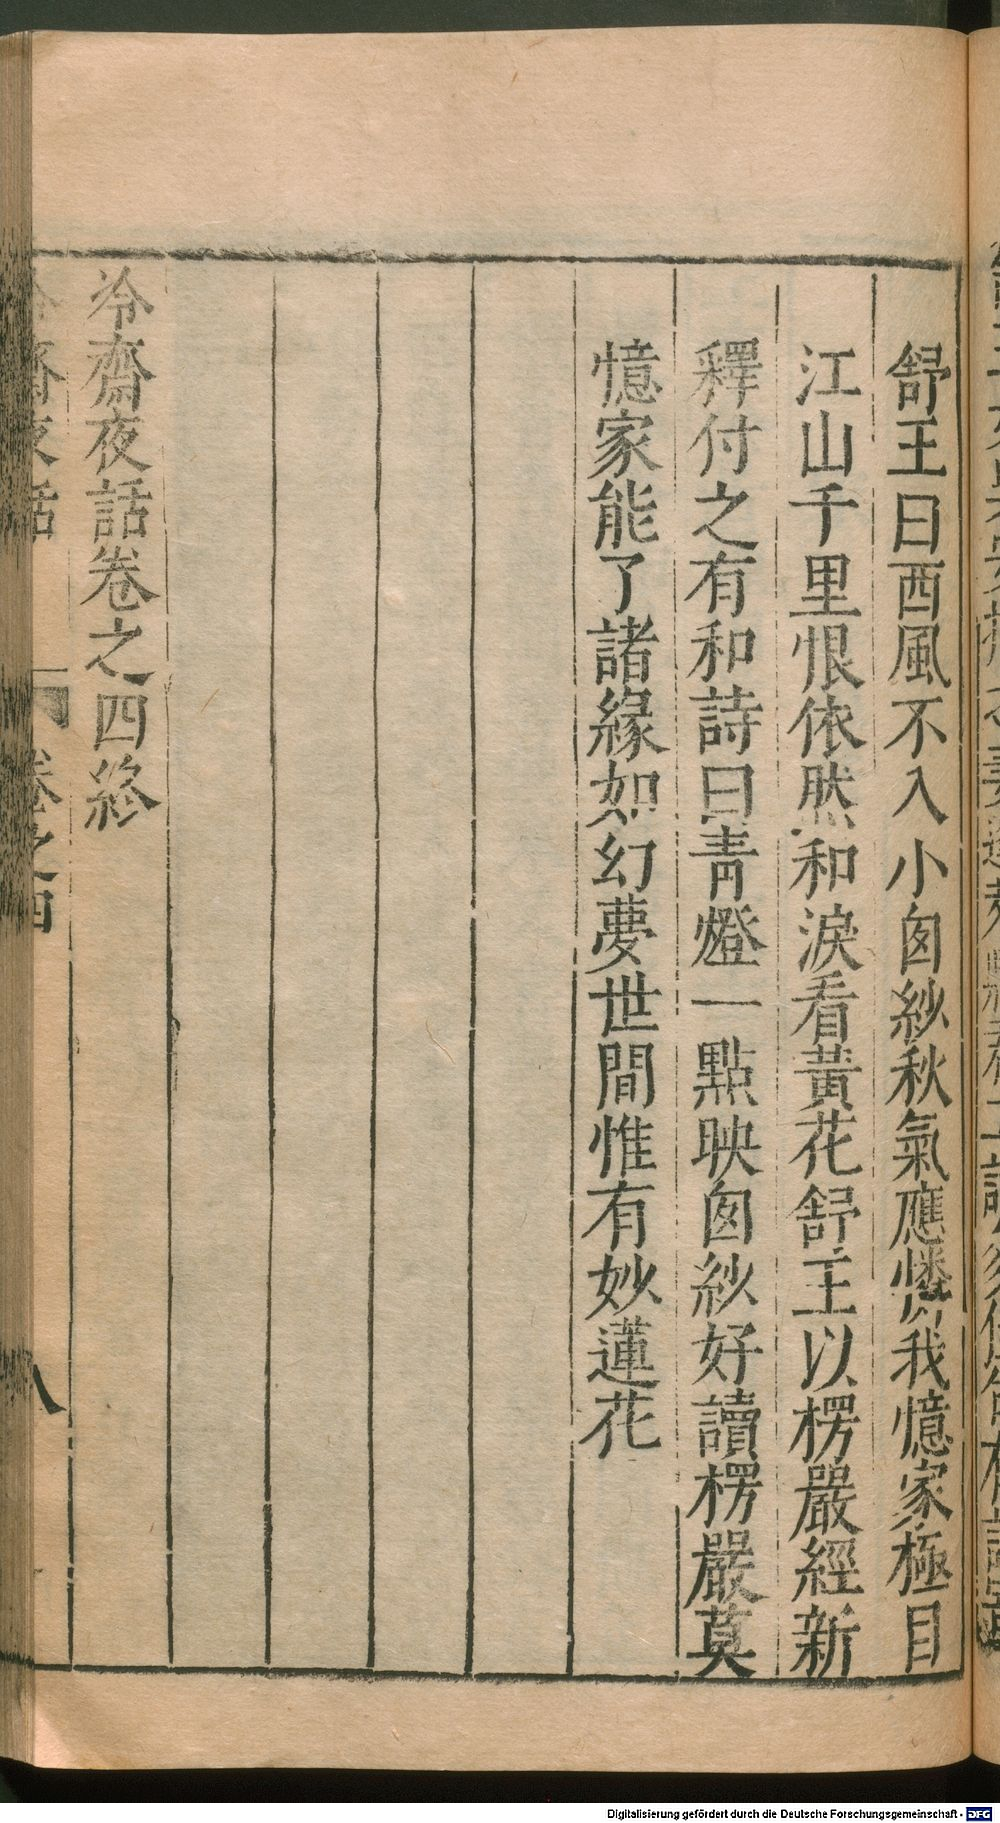 舒王曰西風不入小囱紗秋氣應憐我憶家極目
江山千里恨依然和淚看黃花舒王以楞嚴經新
釋付之有和詩曰青燈一點映囱紗好讀楞嚴莫
憶家能了諸緣如幻夢世間惟有妙蓮花
冷齋夜話卷之四終
冷齋夜話 卷之四 八
Digitalisierung gefördert durch die Deutsche Forschungsgemeinschaft - DFG